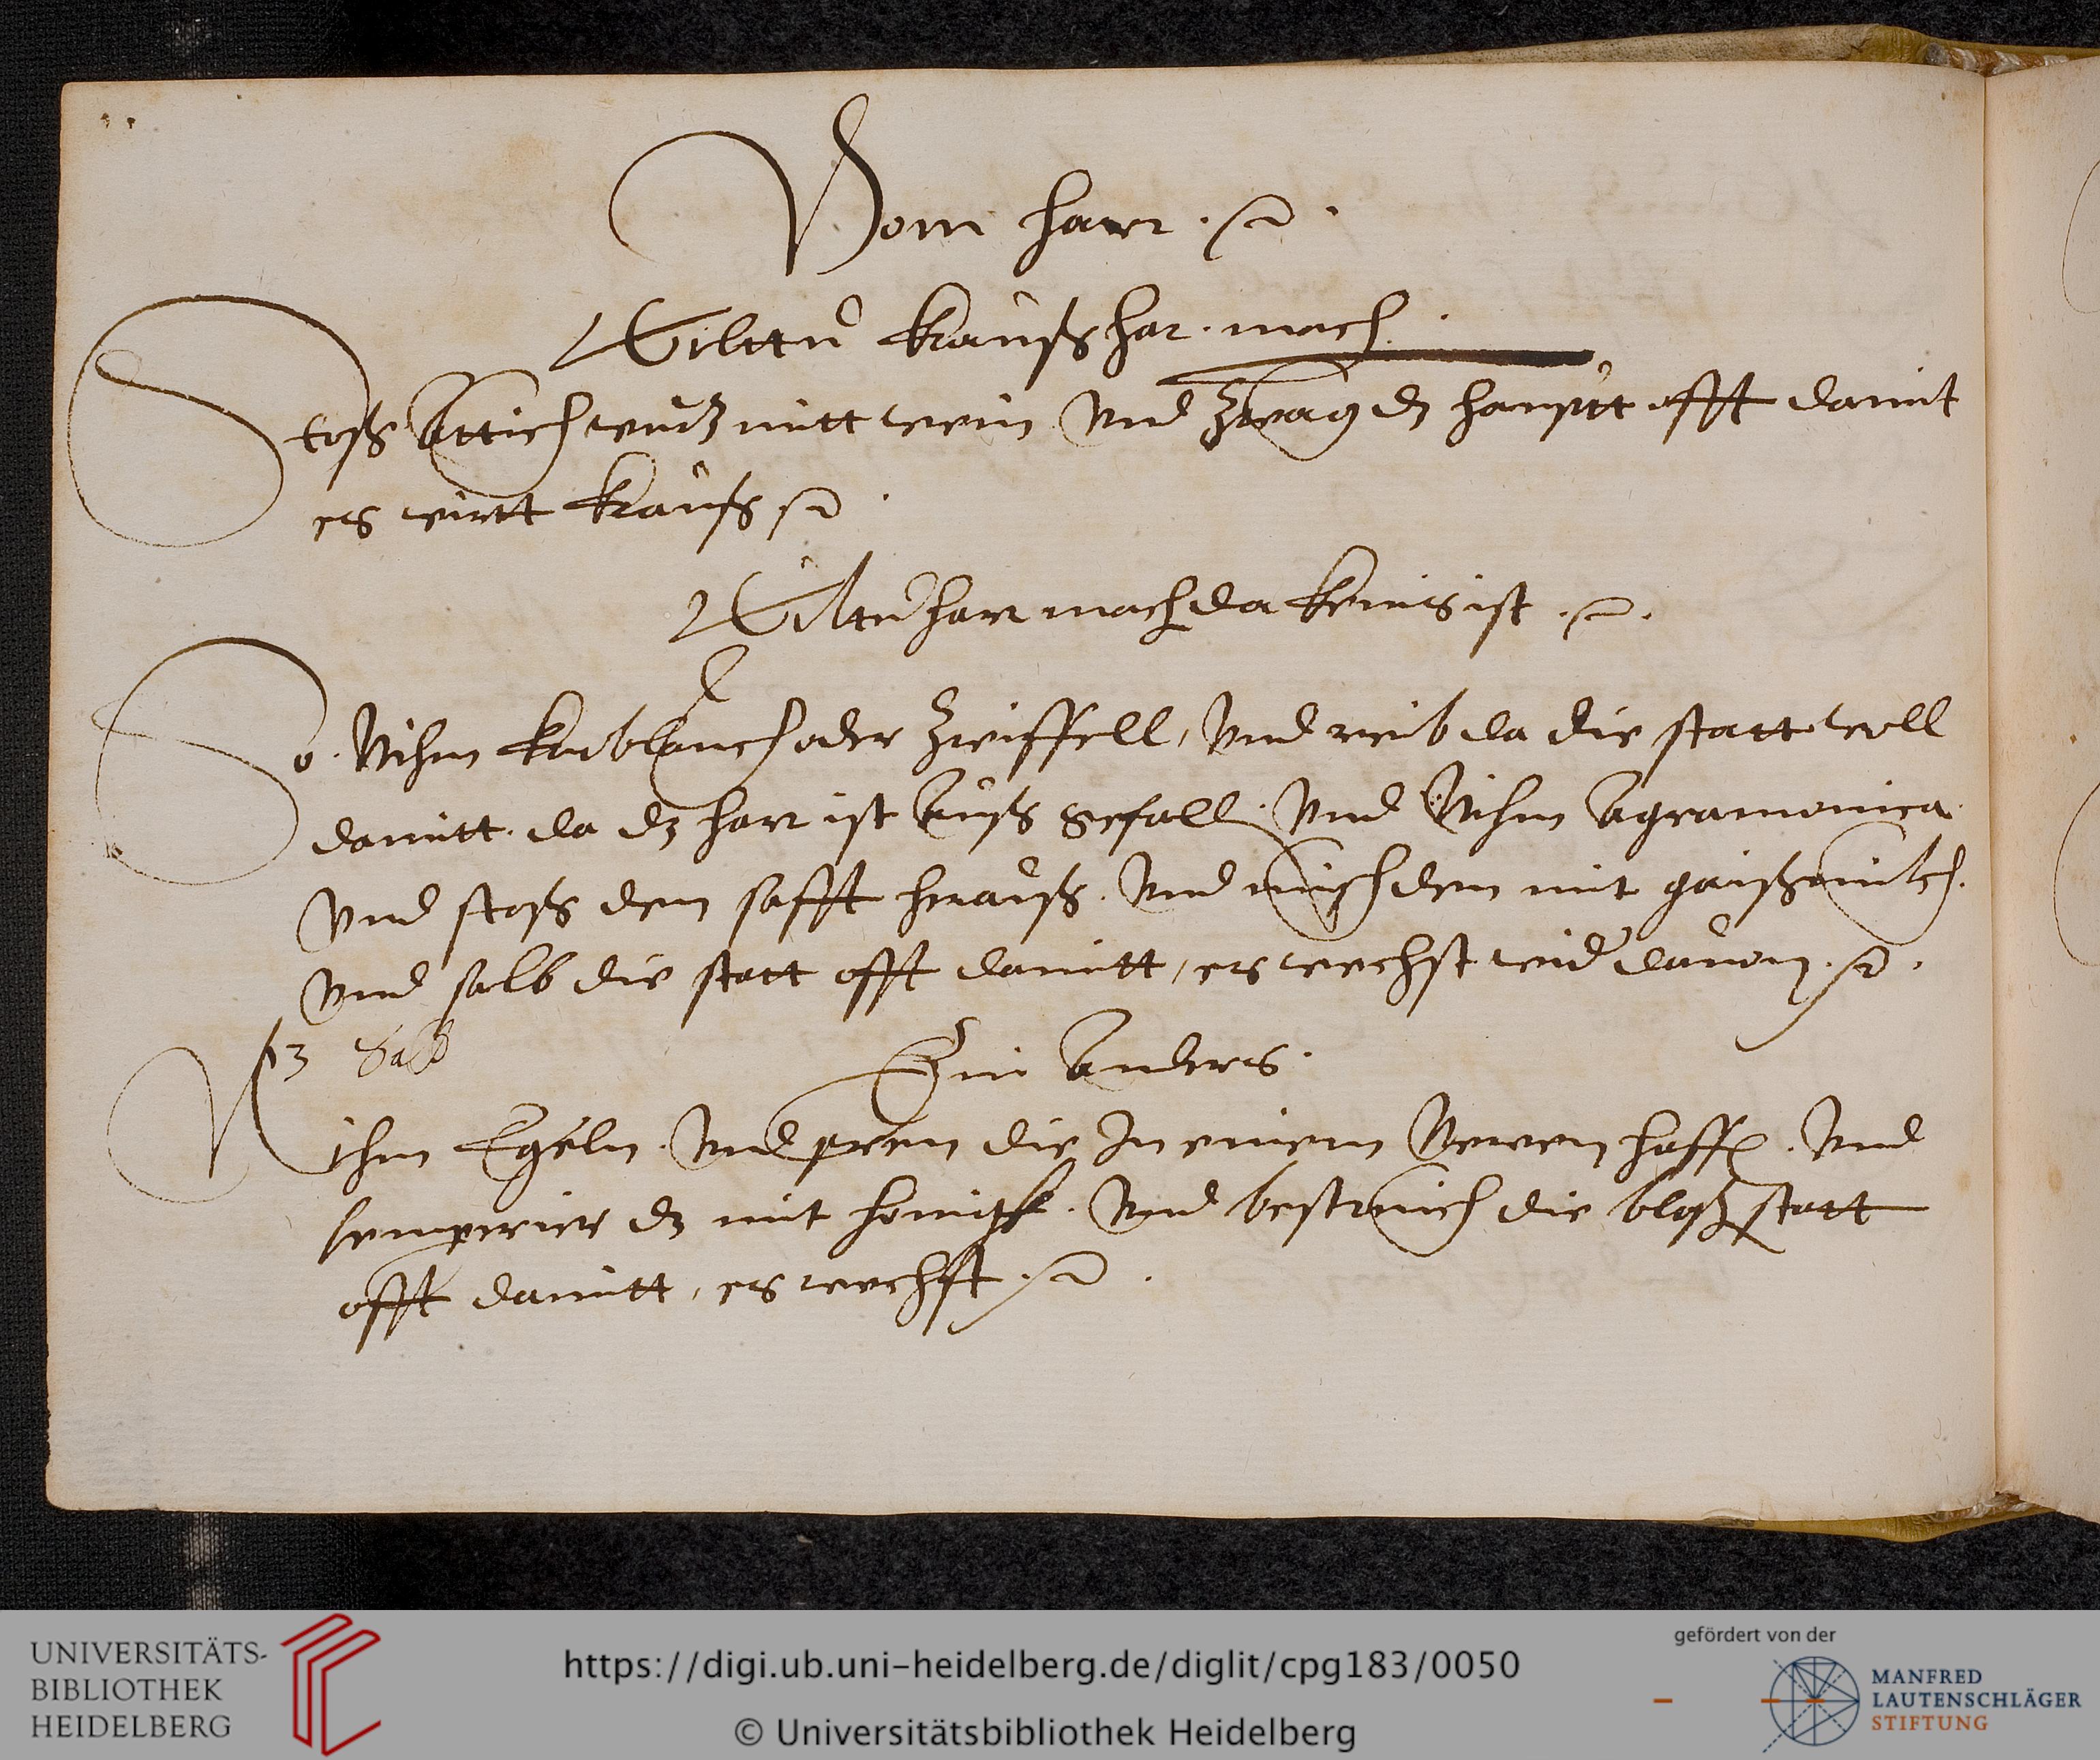 Vom harr
Wilttu kraußhar mach
Stoß Attichwurtz mitt wein Vnd Zwag dz hauptt offt damit
es wirtt krauß
Wiltu harr mach da keins ist
So Nihm knoblauch oder Zwiffell, Vnd reib da die statt woll
damitt da dz harr ist Auß gefall Vnd Nihm Agramonica
Vnd stoß den safft herauß Vnd misch den mit gaißmilch
Vnd salb die statt offt damitt, es wechst wid dauon
13 Salb
Ein Anders
Nihm Egeln Vnd pren die In einem Newen haffen Vnd
temperier dz mit honigk Vnd bestreich die bloß statt
offt damitt, es wechst
UNIVERSITÄTS-
BIBLIOTHEK
HEIDELBERG
https://digi.ub.uni-heidelberg.de/diglit/cpg183/0050
© Universitätsbibliothek Heidelberg
gefördert von der
MANFRED
LAUTENSCHLÄGER
STIFTUNG